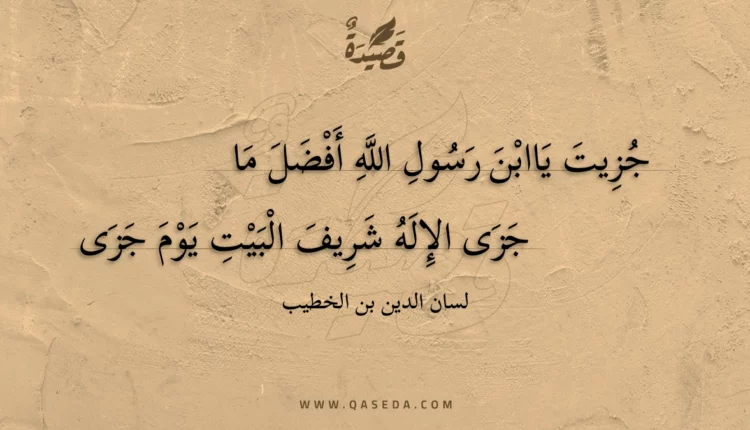 قَصِيدَةٌ
جُزِيتَ يَاابْنَ رَسُولِ اللَّهِ أَفْضَلَ مَا
جَزَى الإِلَهُ شَرِيفَ الْبَيْتِ يَوْمَ جَزَى
لسان الدين بن الخطيب
WWW.QASEDA.COM